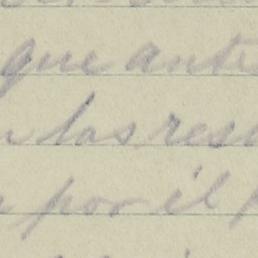 que ante
las res
por il